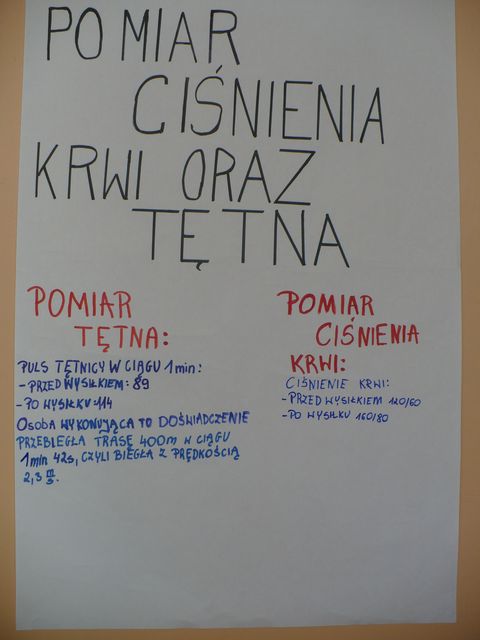 POMIAR
CIŚNIENIA
KRWI ORAZ
TĘTNA
POMIAR
TĘTNA:
PULS TĘTNICY W CIĄGU 1 min:
- PRZED WYSIŁKIEM: 89
- PO WYSIŁKU: 114
OSOBA WYKONUJĄCA TO DOŚWIADCZENIE
PRZEBIEGŁA TRASĘ 400m W CIĄGU
1 min 42s, CZYLI BIEGŁA Z PRĘDKOŚCIĄ
2,3 m/s.
POMIAR
CIŚNIENIA
KRWI:
CIŚNIENIE KRWI:
- PRZED WYSIŁKIEM 120/60
- PO WYSIŁKU 160/80